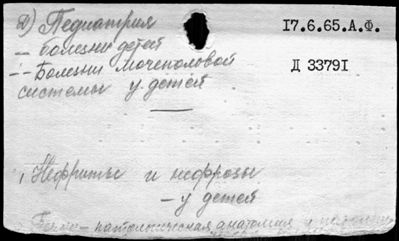 Д) Педиатрия
17.6.65.А.Ф.
— болезни детей
— Болезни мочеполовой
Д 33791
системы у детей
Нефриты и нефрозы
— у детей
— патологическая анатомия и